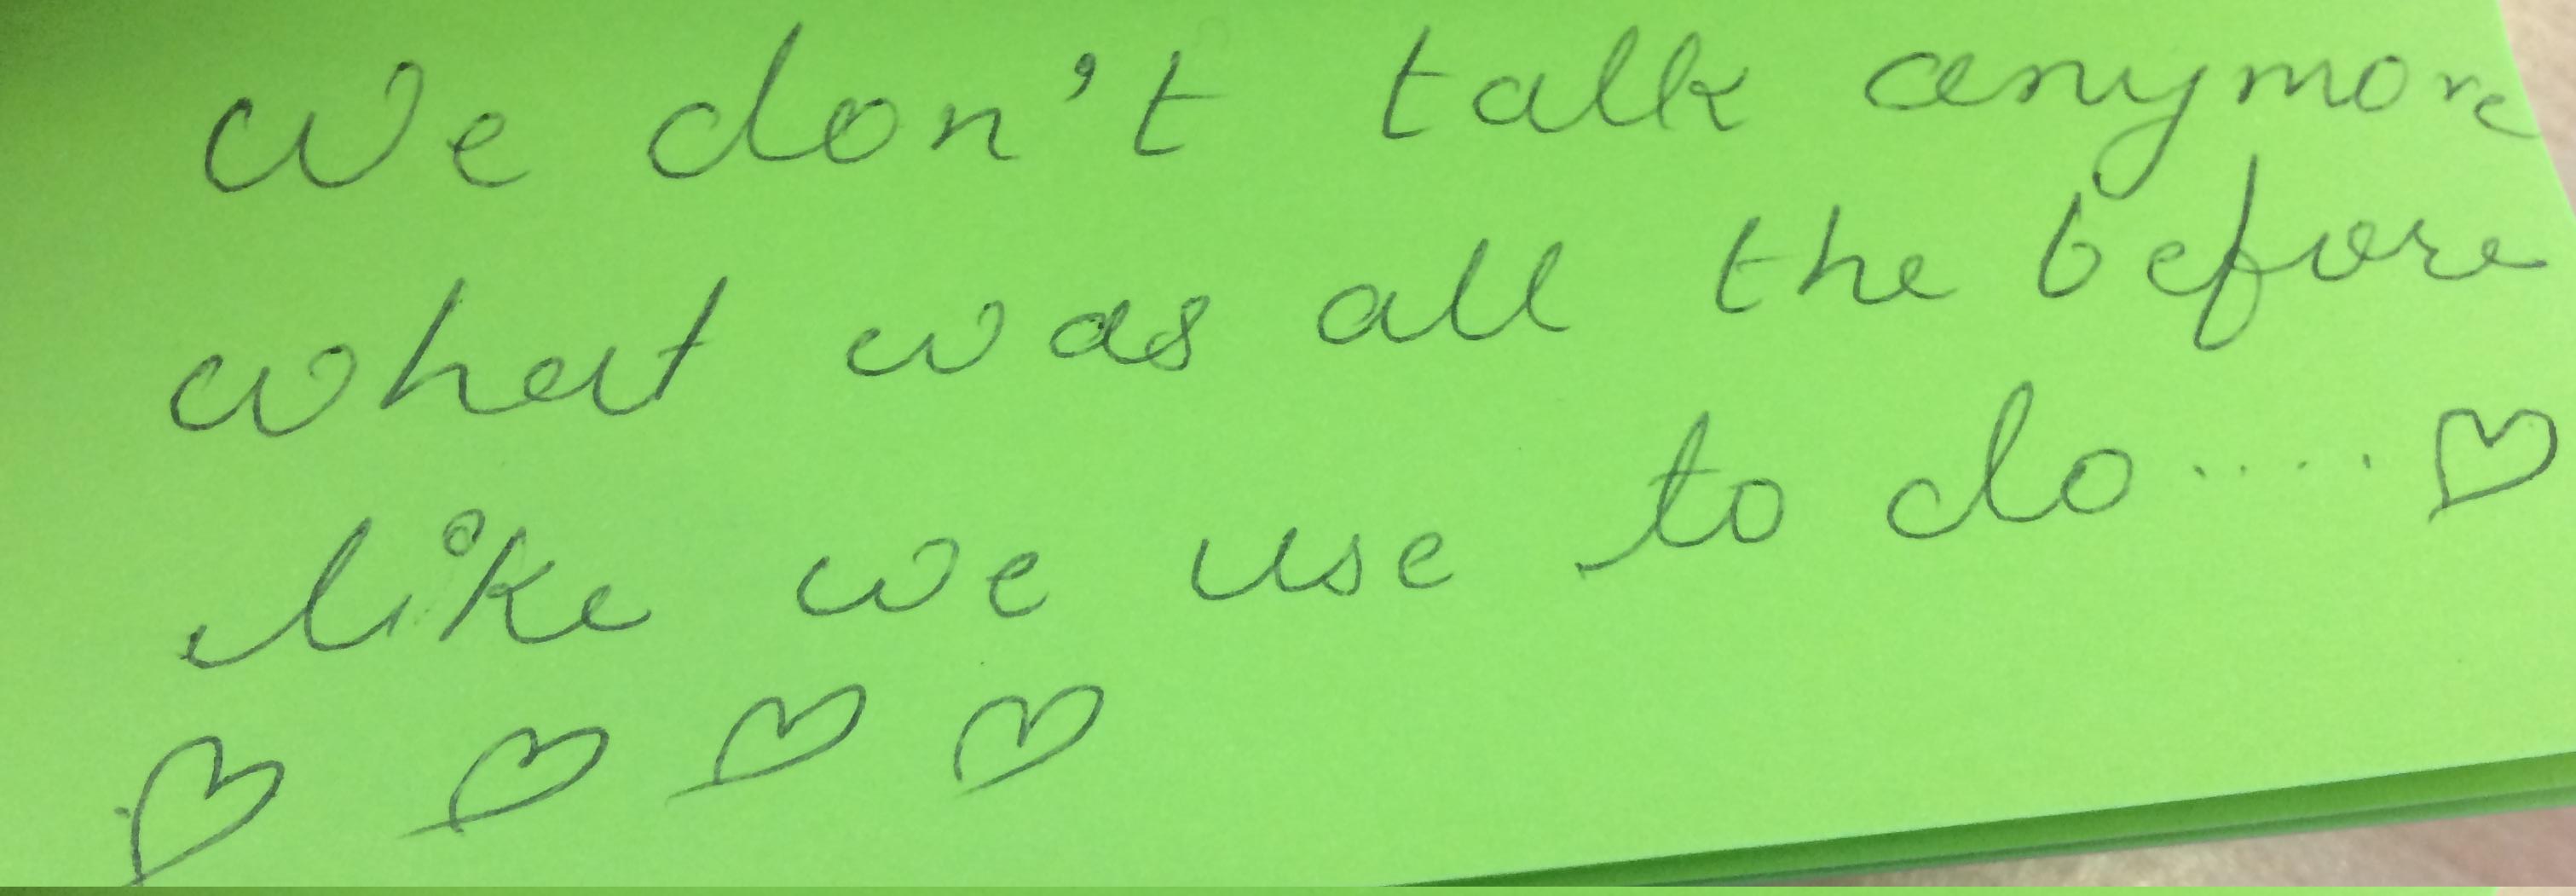 We don't talk anymore
what was all the before
like we use to do.... ♡
♡ ♡ ♡ ♡